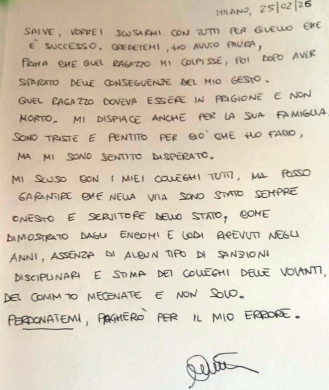 MILANO, 25/02/26
SALVE, VORREI SCUSARMI CON TUTTI PER QUELLO CHE
È SUCCESSO. CREDETEMI, HO AVUTO PAURA,
PRIMA CHE QUEL RAGAZZO MI COLPISSE, POI DOPO AVER
SPARATO DELLE CONSEGUENZE DEL MIO GESTO.
QUEL RAGAZZO DOVEVA ESSERE IN PRIGIONE E NON
MORTO. MI DISPIACE ANCHE PER LA SUA FAMIGLIA.
SONO TRISTE E PENTITO PER CIÒ CHE HO FATTO,
MA MI SONO SENTITO DISPERATO.
MI SCUSO CON I MIEI COLLEGHI TUTTI, MA POSSO
GARANTIRE CHE NELLA VITA SONO STATO SEMPRE
ONESTO E SERVITORE DELLO STATO, COME
DIMOSTRATO DAGLI ENCOMI E LODI RICEVUTI NEGLI
ANNI, ASSENZA DI ALCUN TIPO DI SANZIONI
DISCIPLINARI E STIMA DEI COLLEGHI DELLE VOLANTI,
DEL COMM.TO MECENATE E NON SOLO.
PERDONATEMI, PAGHERÒ PER IL MIO ERRORE.